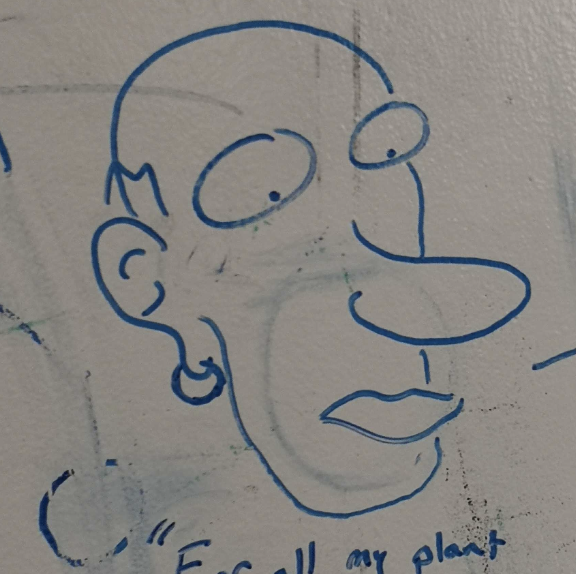 "For all my plant